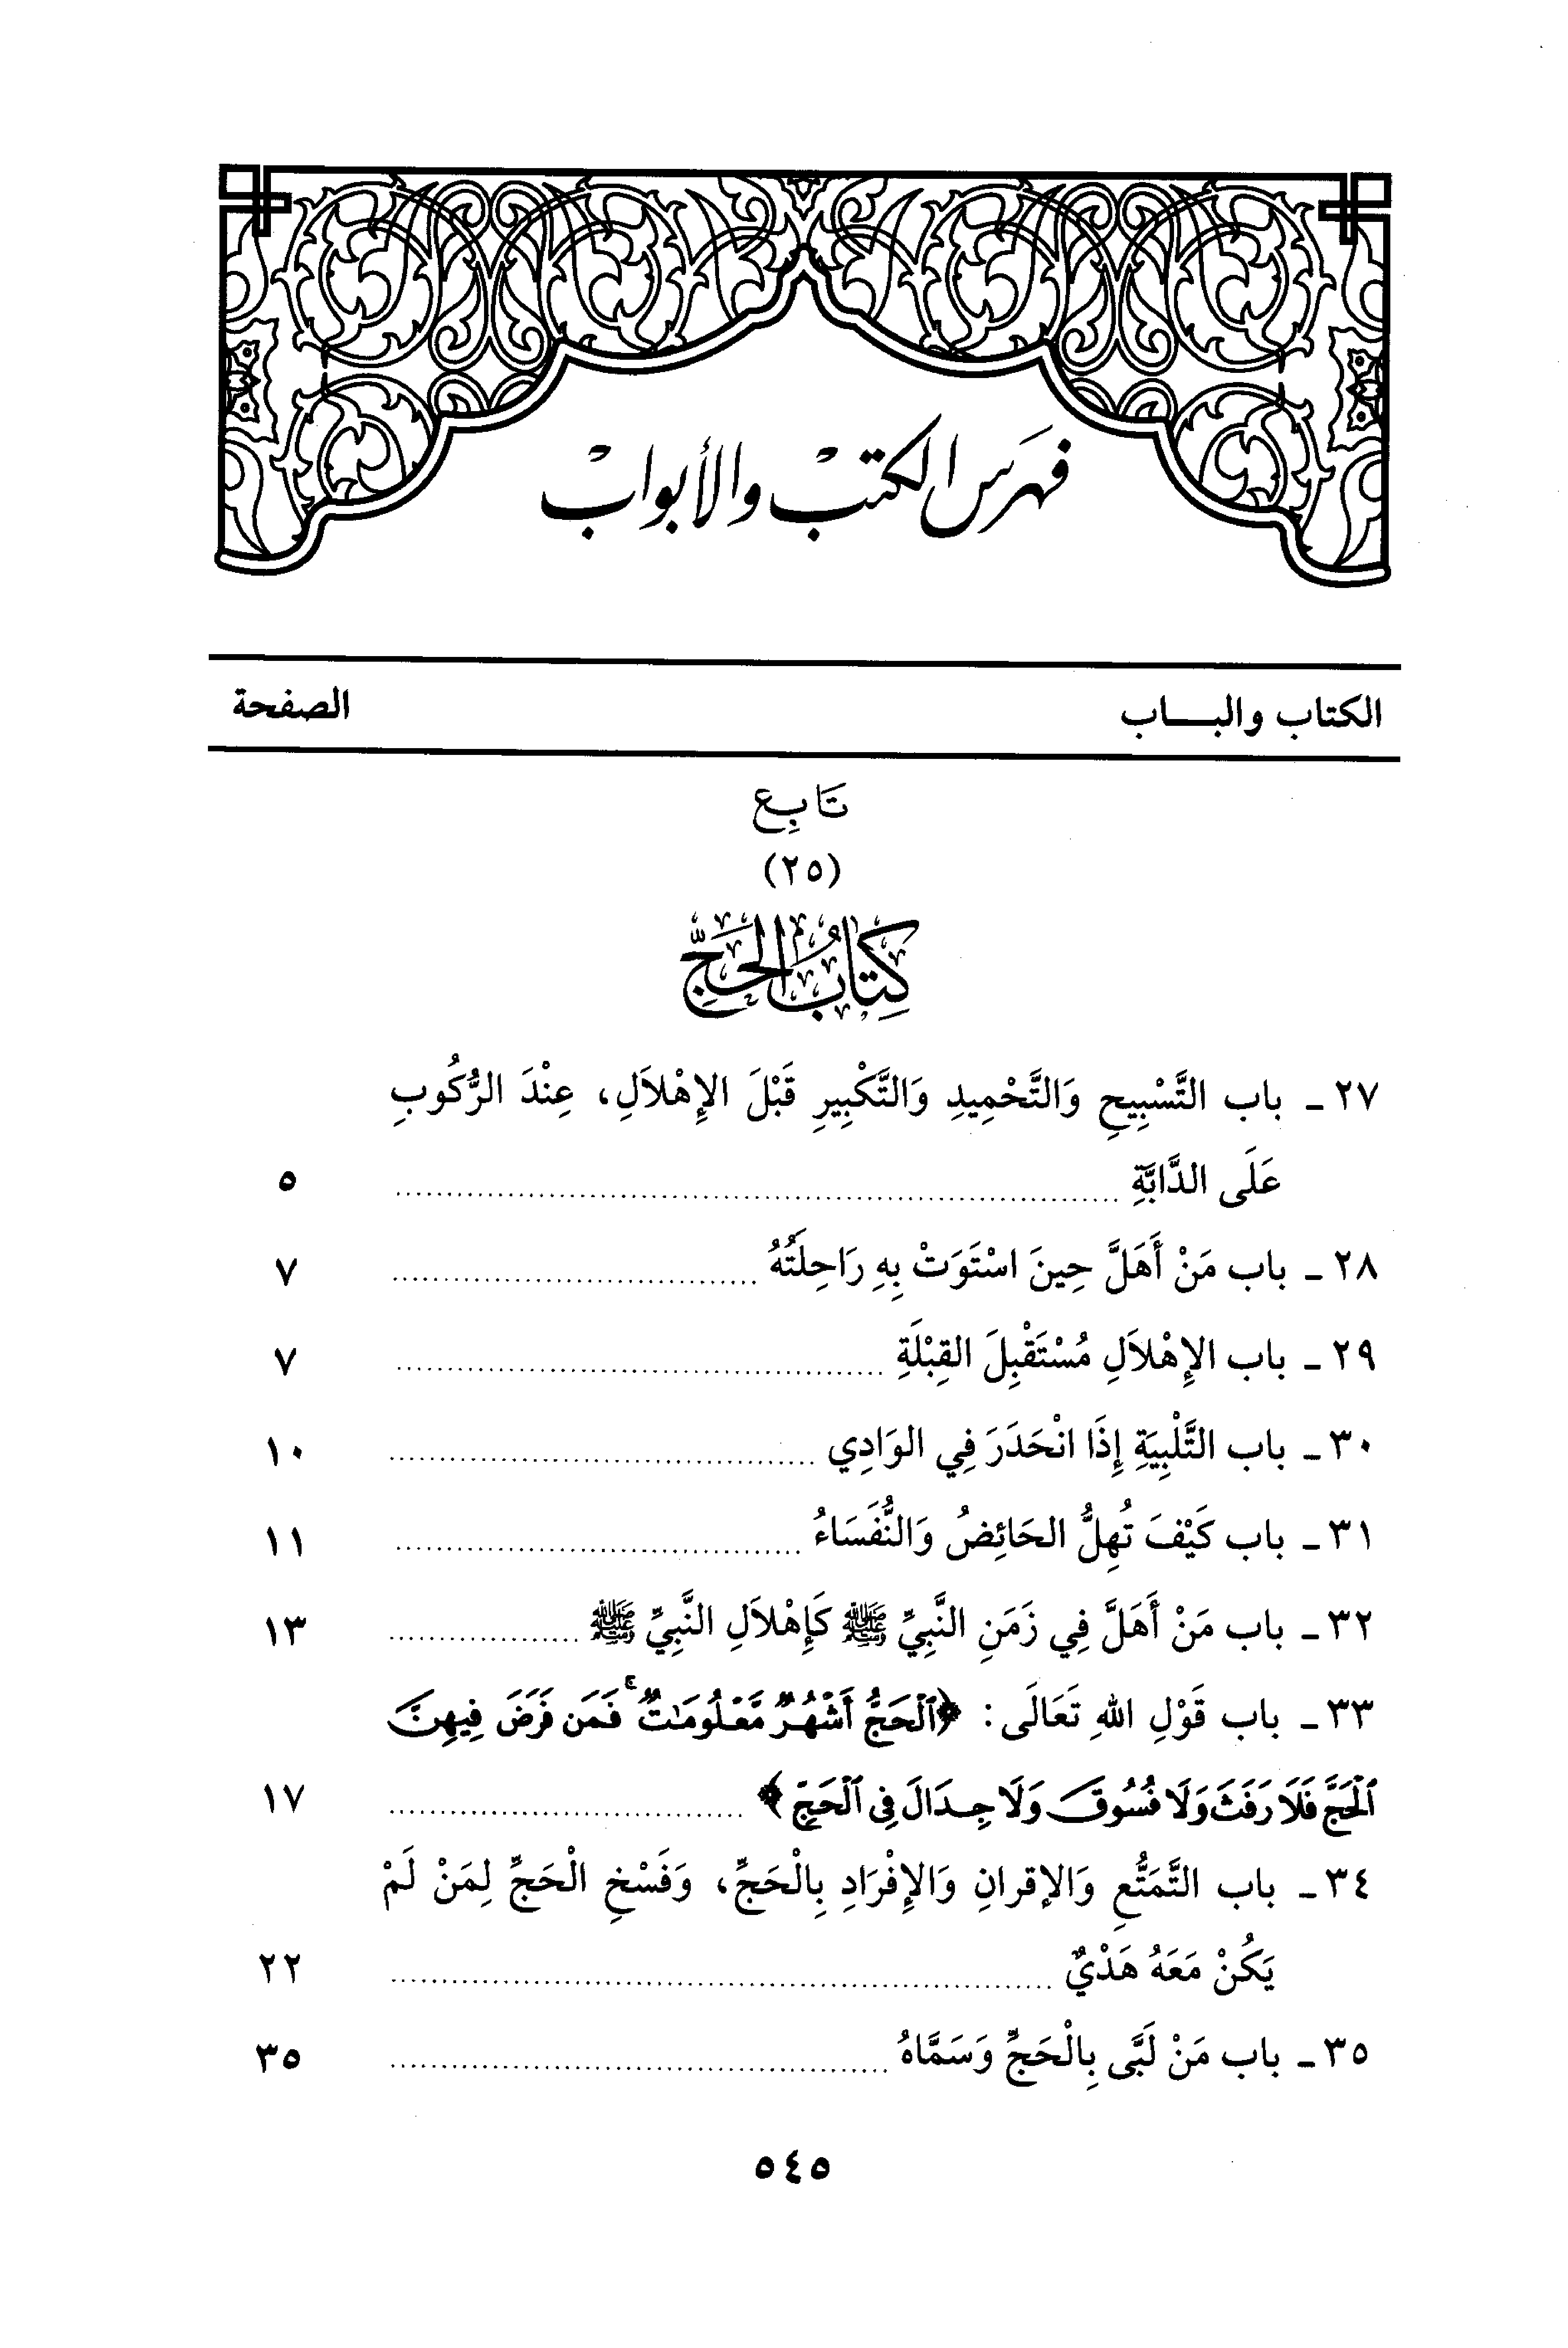 فهرس الكتب والأبواب
الكتاب والبـــاب الصفحة
تَابِع
(٢٥)
كِتَابُ الحَجِّ
٢٧ - باب التَّسْبِيحِ وَالتَّحْمِيدِ وَالتَّكْبِيرِ قَبْلَ الإِهْلاَلِ، عِنْدَ الرُّكُوبِ
عَلَى الدَّابَّةِ ........ ٥
٢٨ - باب مَنْ أَهَلَّ حِينَ اسْتَوَتْ بِهِ رَاحِلَتُهُ ........ ٧
٢٩ - باب الإِهْلاَلِ مُسْتَقْبِلَ القِبْلَةِ ........ ٧
٣٠ - باب التَّلْبِيَةِ إِذَا انْحَدَرَ فِي الوَادِي ........ ١٠
٣١ - باب كَيْفَ تُهِلُّ الحَائِضُ وَالنُّفَسَاءُ ........ ١١
٣٢ - باب مَنْ أَهَلَّ فِي زَمَنِ النَّبِيِّ ﷺ كَإِهْلاَلِ النَّبِيِّ ﷺ ........ ١٣
٣٣ - باب قَوْلِ اللهِ تَعَالَى: ﴿ٱلۡحَجُّ أَشۡهُرٞ مَّعۡلُومَٰتٞۚ فَمَن فَرَضَ فِيهِنَّ
ٱلۡحَجَّ فَلَا رَفَثَ وَلَا فُسُوقَ وَلَا جِدَالَ فِي ٱلۡحَجِّ﴾ ........ ١٧
٣٤ - باب التَّمَتُّعِ وَالإقرانِ وَالإِفْرَادِ بِالْحَجِّ، وَفَسْخِ الْحَجِّ لِمَنْ لَمْ
يَكُنْ مَعَهُ هَدْيٌ ........ ٢٢
٣٥ - باب مَنْ لَبَّى بِالْحَجِّ وَسَمَّاهُ ........ ٣٥
٥٤٥